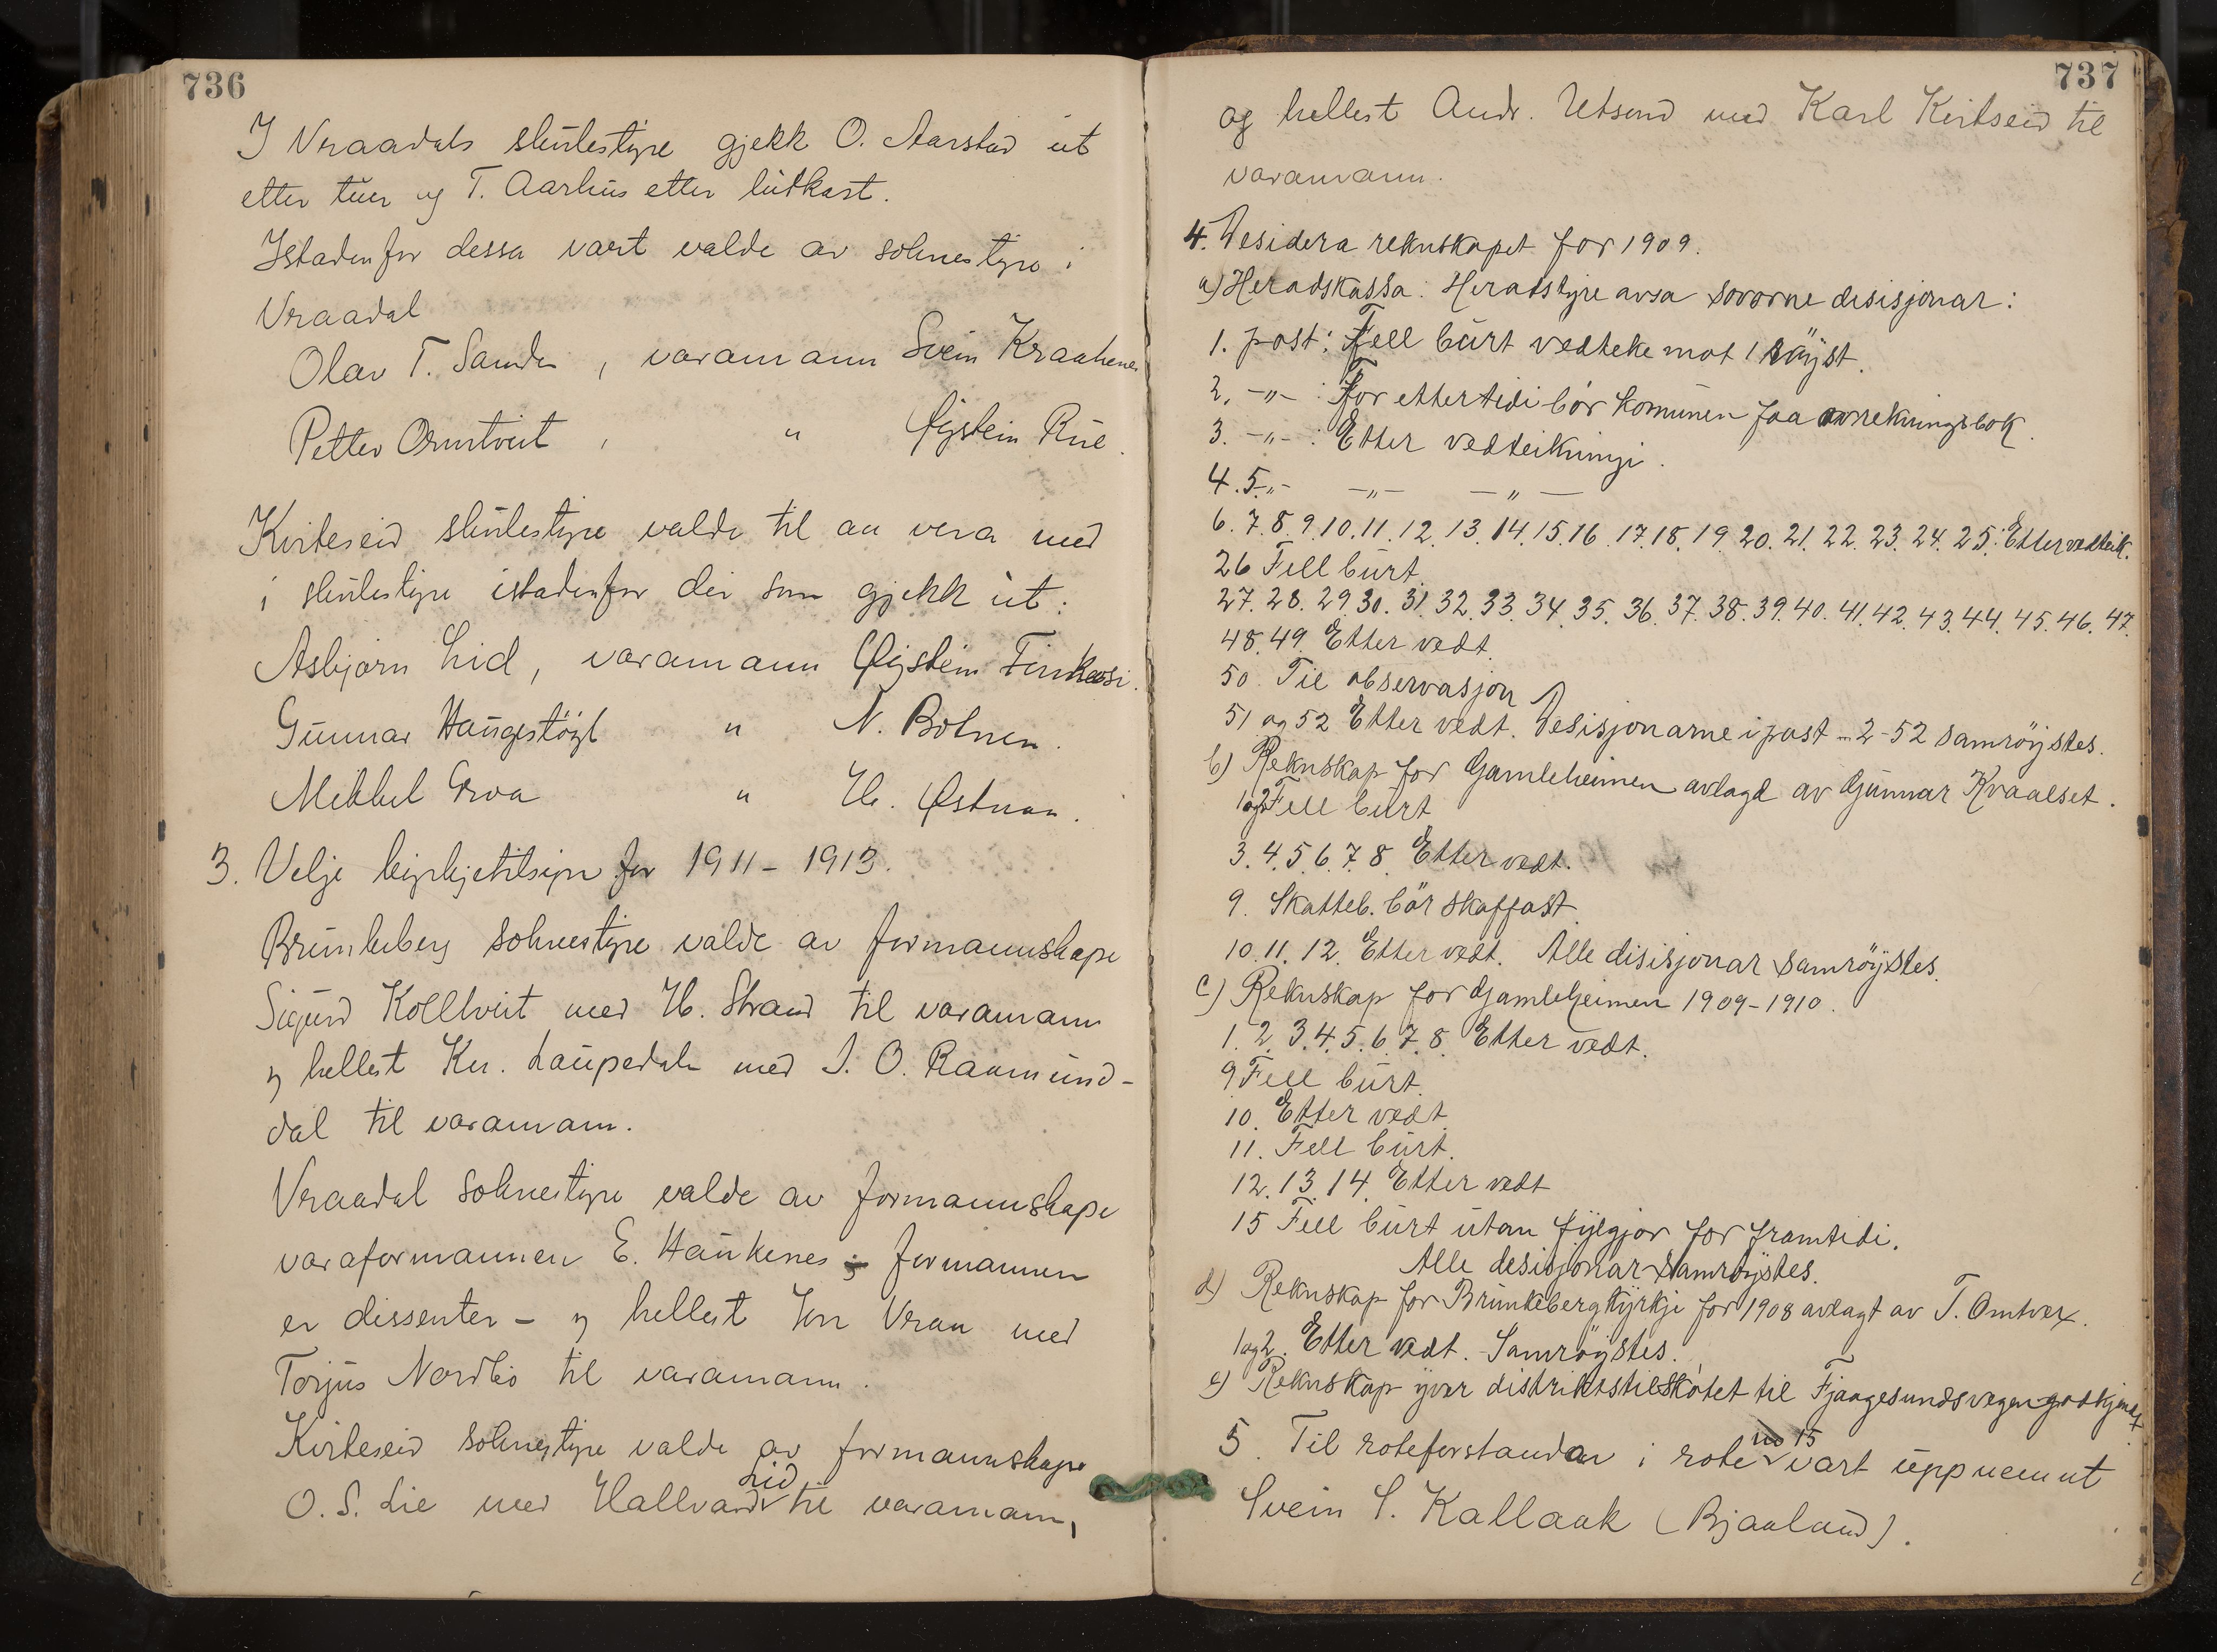 736
I Vraadals skulestyre gjekk O. Aarstad ut
etter tur og T. Aarhus etter lutkast.
Istadenfor dessa vart valde av soknestyre i
Vraadal
Olav T. Sanden, varamann Svein Kraakenes
Petter Omtveit, " Øystein Rue.
Kviteseid skulestyre valde til aa vera med
i skulestyre istadenfor dei som gjekk ut:
Asbjørn Lid, varamann Øystein
Gunnar Haugestöyl " N. Botnen.
Mikkel Groa " H. Østman.
3. Velje kyrkjetilsyn for 1911-1913.
Brunkeberg soknestyre valde av formannskape
Sigurd Kolltveit med H. Strand til varamann
og hellest Kn. Laupedalen med S. O. Raamund-
dal til varamann.
Vraadal soknestyre valde av formannskape
varaformannen E. Haukenes formannen
er dissenter - og hellest Jon Vraa med
Torjus Nordbö til varamann.
Kviteseid soknestyre valde av formannskape
O. S. Lie med Hallvard Lid til varamann,
737
og hellest Andr. Utsund med Karl Kviteseid til
varamann.
4. Desidera reknskapet for 1909.
a) Heradskassa: Heradstyre avsa sovorne desisjonar:
1. post: Fell burt vedteke mot 1 röyst.
2. -"- : For ettertidi bör komunen faa avrekningsbok.
3. -"- : Etter vedteikningi.
4. 5. -"- -"- -"-
6. 7. 8. 9. 10. 11. 12. 13. 14. 15. 16. 17. 18. 19. 20. 21. 22. 23. 24. 25. Etter vedteik.
26 Fell burt.
27. 28. 29. 30. 31. 32. 33. 34. 35. 36. 37. 38. 39. 40. 41. 42. 43. 44. 45. 46. 47.
48. 49. Etter vedt.
50. Til observasjon
51 og 52 Etter vedt. Desisjonarne i post 2-52 samröystes.
b) Reknskap for Gamleheimen avlagd av Gunnar Kvaalset.
1 og 2 Fell burt
3. 4. 5. 6. 7. 8. Etter vedt.
9. Skatteb. bör skaffast.
10. 11. 12. Etter vedt. Alle disisjonar samröystes.
c) Reknskap for Gamleheimen 1909-1910.
1. 2. 3. 4. 5. 6. 7. 8. Etter vedt.
9 Fell burt.
10. Etter vedt.
11. Fell burt.
12. 13. 14. Etter vedt
15 Fell burt utan fylgjor for framtidi.
Alle desisjonar samröystes.
d) Reknskap for Brunkeberg kyrkje for 1908 avlagt av T. Omtvet.
1 og 2. Etter vedt. Samröystes.
e) Reknskap yver distriktstilskotet til Fjaagesundsvegen godkjendt.
5. Til roteforstandar i rote no 15 vart uppnemnt
Svein S. Kallaak (Bjaaland).